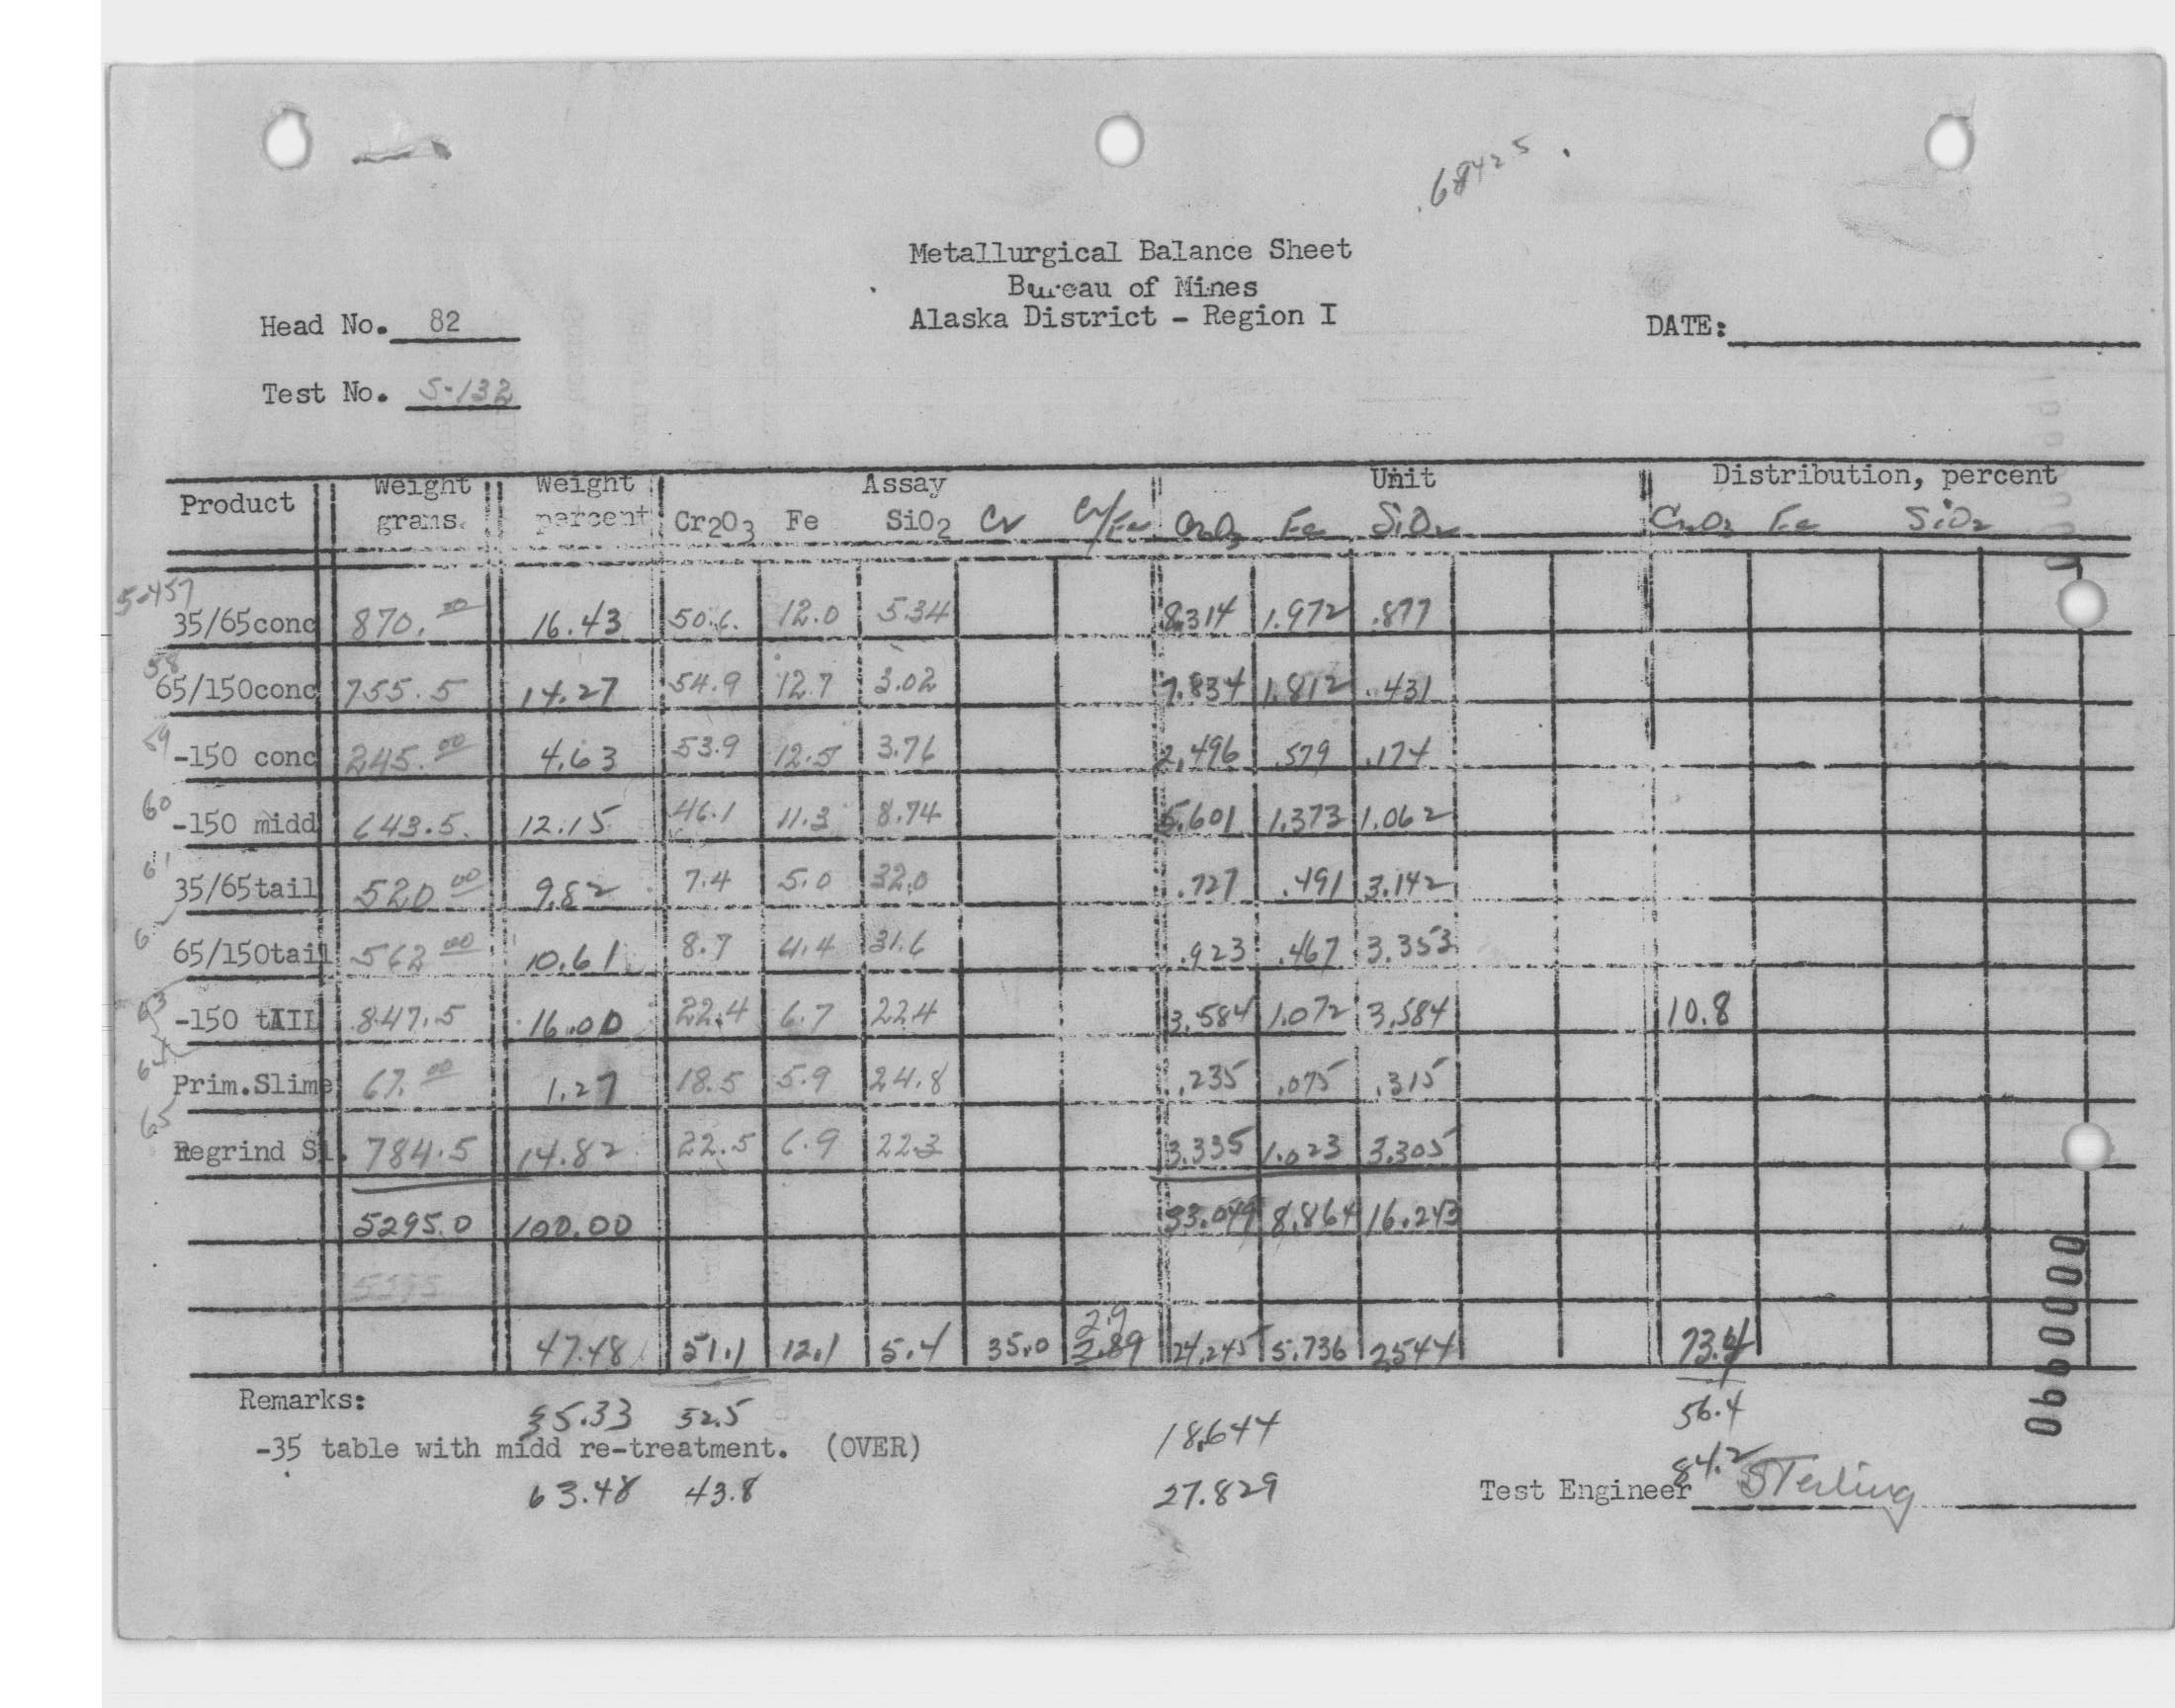 .68425
Metallurgical Balance Sheet
Bureau of Mines
Alaska District - Region I
Head No. 82
DATE:
Test No. S-132
Product Weight grams Weight percent Assay Unit Distribution, percent
Cr2O3 Fe SiO2 Cr Cr/Fe Cr2O3 Fe SiO2 Cr2O3 Fe SiO2
S-457
35/65conc 870.00 16.43 50.6 12.0 5.34 8.314 1.972 .877
58
65/150conc 755.5 14.27 54.9 12.7 3.02 7.834 1.812 .431
59
-150 conc 245.00 4.63 53.9 12.5 3.76 2.496 .579 .174
60
-150 midd 643.5 12.15 46.1 11.3 8.74 5.601 1.373 1.062
61
35/65tail 520.00 9.82 7.4 5.0 32.0 .727 .491 3.142
6
65/150tail 562.00 10.61 8.7 4.4 31.6 .923 .467 3.353
63
-150 tAIl 847.5 16.00 22.4 6.7 22.4 3.584 1.072 3.584 10.8
64
Prim.Slime 67.00 1.27 18.5 5.9 24.8 .235 .075 .315
65
Regrind Sl. 784.5 14.82 22.5 6.9 22.3 3.335 1.023 3.305
5295.0 100.00 33.049 8.864 16.243
5295
2.9
47.48 51.1 12.1 5.4 35.0 2.89 24.245 5.736 2.544 73.4
Remarks:
35.33 52.5 18.644 56.4
-35 table with midd re-treatment. (OVER)
63.48 43.8 27.829 84.2
Test Engineer Sterling
000990